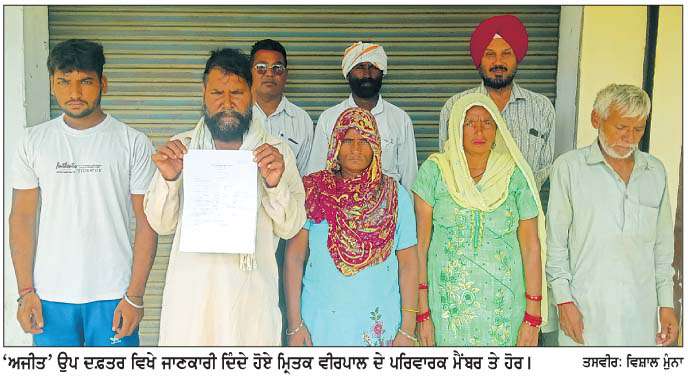 Authentic
'ਅਜੀਤ' ਉਪ ਦਫ਼ਤਰ ਵਿਖੇ ਜਾਣਕਾਰੀ ਦਿੰਦੇ ਹੋਏ ਮ੍ਰਿਤਕ ਵੀਰਪਾਲ ਦੇ ਪਰਿਵਾਰਕ ਮੈਂਬਰ ਤੇ ਹੋਰ। ਤਸਵੀਰ: ਵਿਸ਼ਾਲ ਮੁੰਨਾ